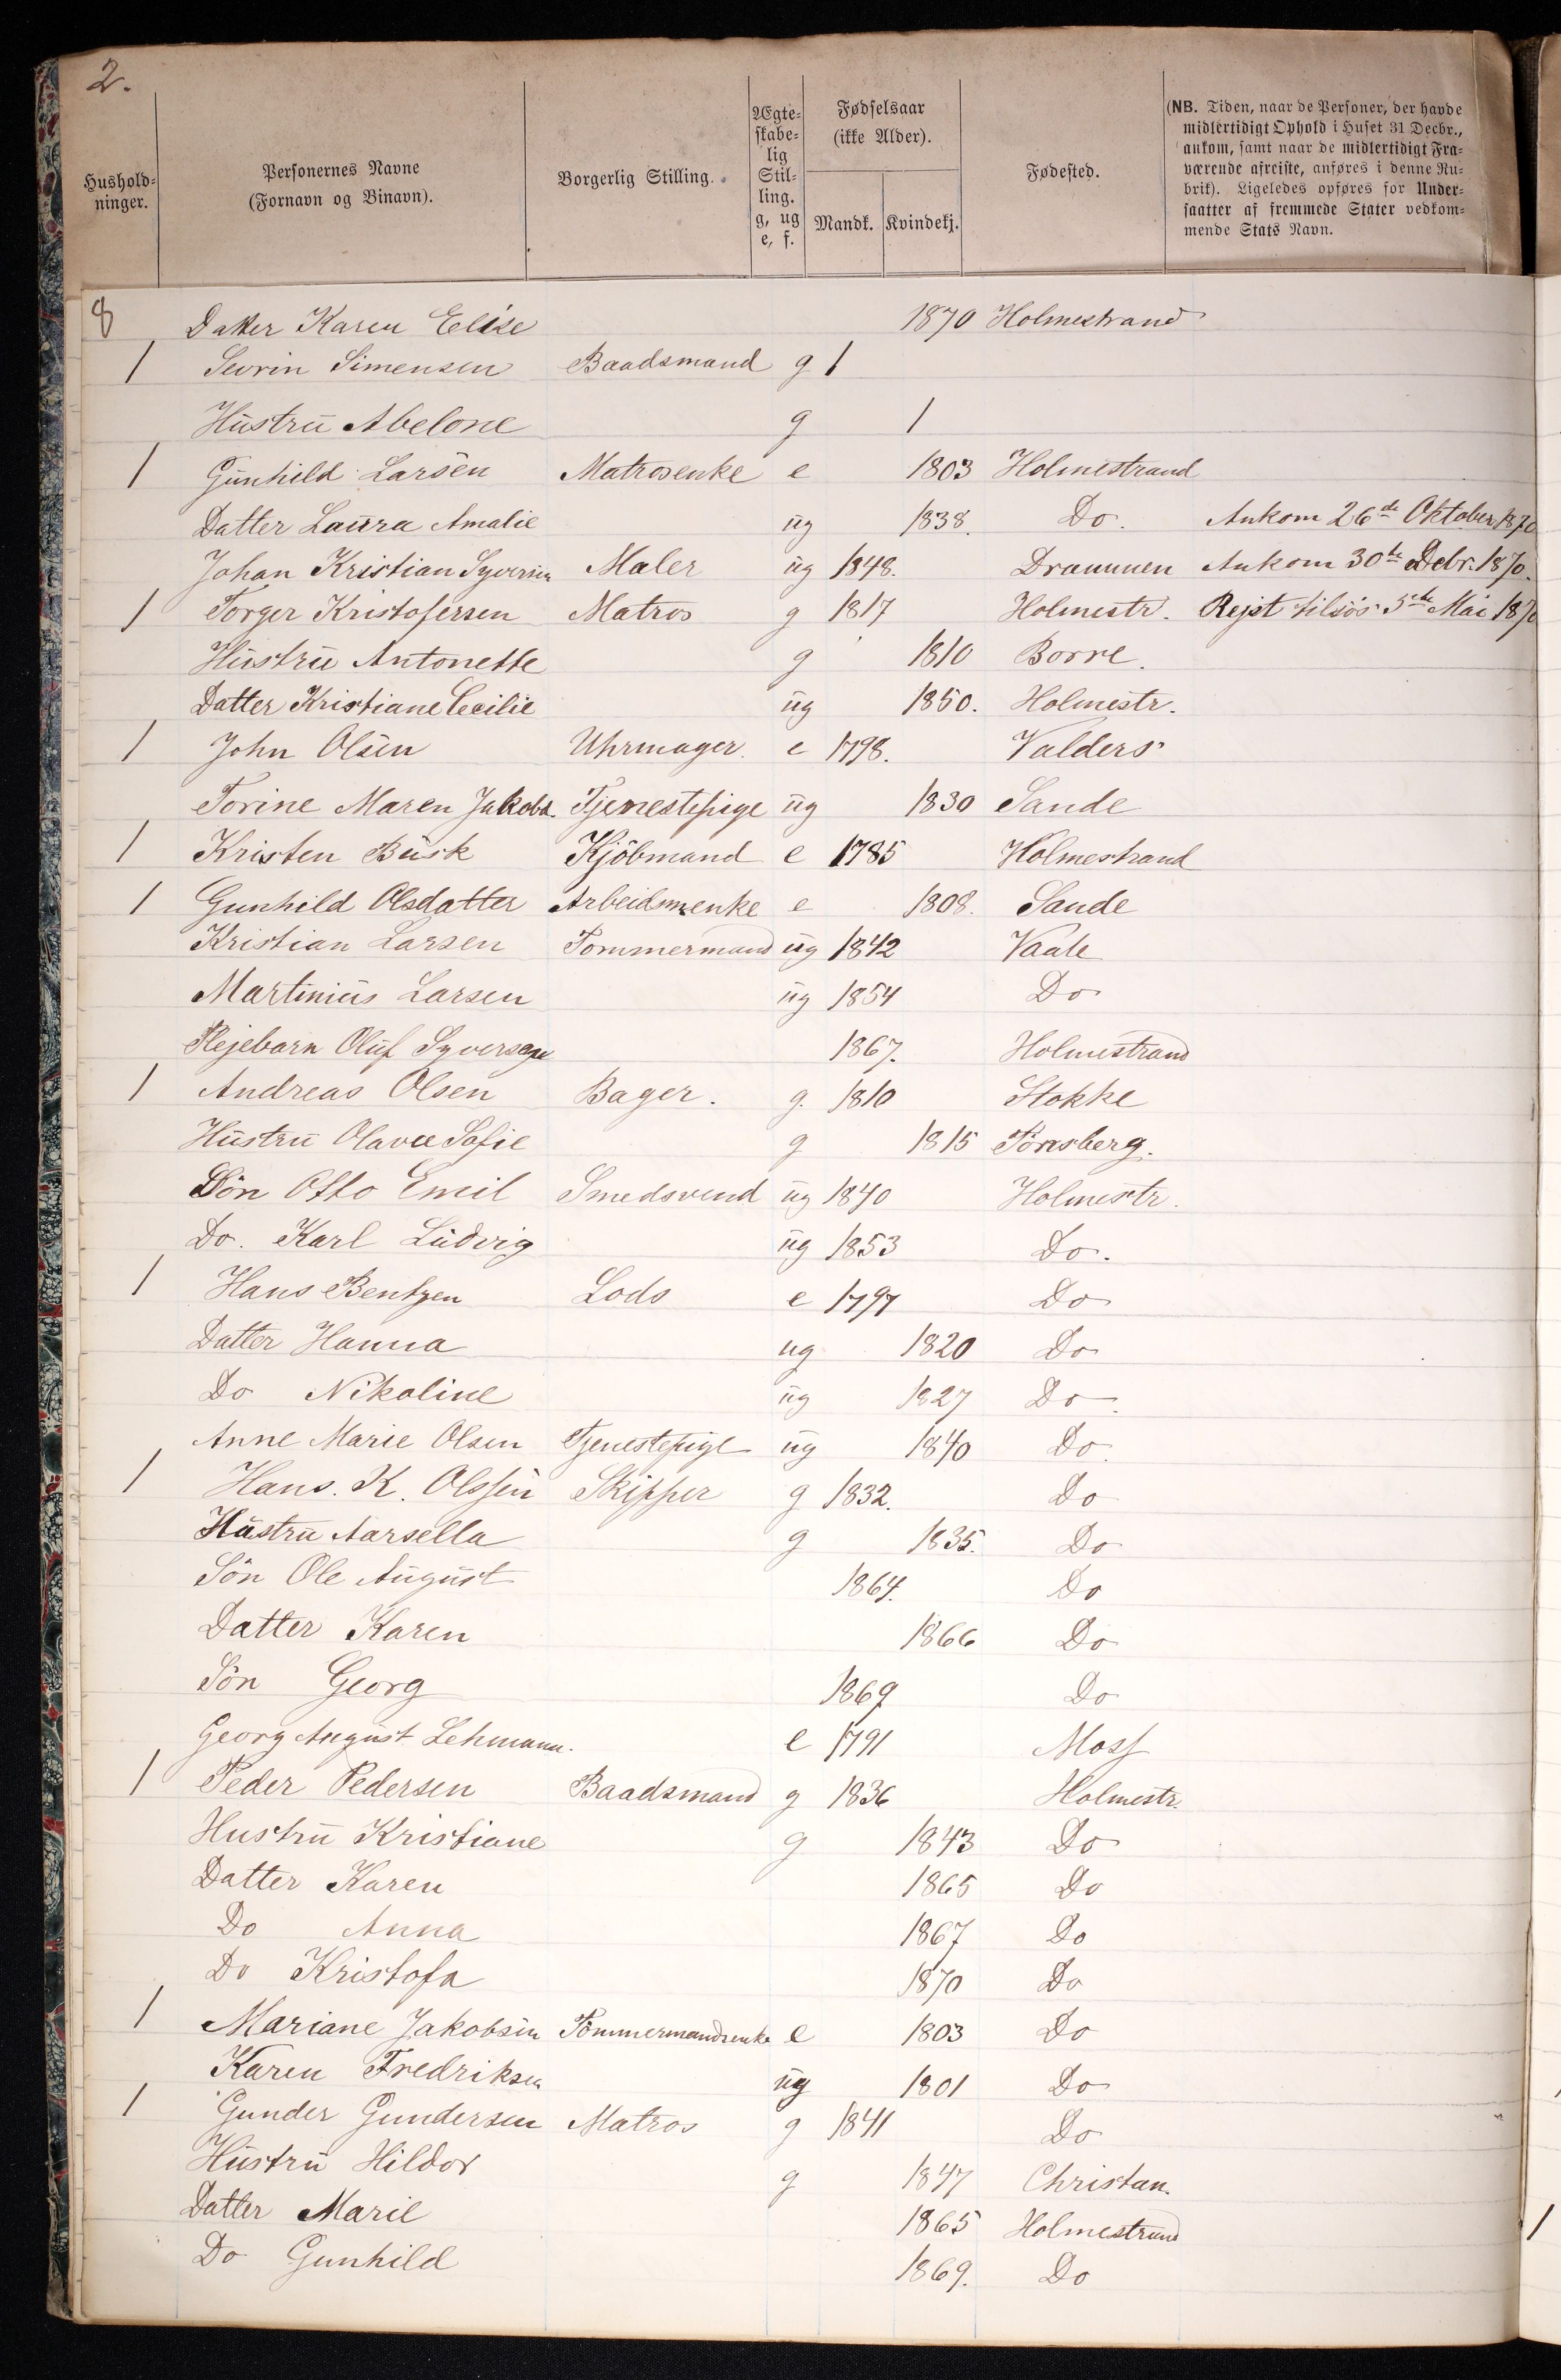 2.
Hushold-
ninger.
Personernes Navne
(Fornavn og Binavn).
Borgerlig Stilling.
Ægte-
skabe-
lig
Stil-
ling.
g, ug
e, f.
Fødselsaar
(ikke Alder).
Mandk. Kvindekj.
Fødested.
(NB. Tiden, naar de Personer, der havde
midlertidigt Ophold i Huset 31 Decbr.,
ankom, samt naar de midlertidigt Fra-
værende afreiste, anføres i denne Ru-
brik). Ligeledes opføres for Under-
saatter af fremmede Stater vedkom-
mende Stats Navn.
8 Datter Karen Elise 1870 Holmestrand
1 Sevrin Simensen Baadsmand g 1
Hustru Abelone g 1
1 Gunhild Larsen Matrosenke e 1803 Holmestrand
Datter Laura Amalie ug 1838. Do. Ankom 26de Oktober 1870
Johan Kristian Syversen Maler ug 1848. Drammen Ankom 30te Debr. 1870.
1 Torger Kristofersen Matros g 1817 Holmestr. Rejst tilsös 5te Mai 1870
Hustru Antonette g 1810 Borre.
Datter Kristiane Cecilie ug 1850. Holmestr.
1 John Olsen Uhrmager. e 1798. Valders
Torine Maren Jakobs. Tjenestepige ug 1830 Sande
1 Kristen Busk Kjöbmand e 1785 Holmestrand
1 Gunhild Olsdatter Arbeidsmenke e 1808. Sande
Kristian Larsen Tommermand ug 1842 Vaale
Martinius Larsen ug 1854 Do
Plejebarn Oluf Syversen 1867. Holmestrand
1 Andreas Olsen Bager. g. 1810 Stokke
Hustru Olava Sofie g 1815 Tönsberg.
Sön Otto Emil Smedsvend ug 1840 Holmestr.
Do. Karl Ludvig ug 1853 Do.
1 Hans Bentzen Lods e 1797 Do
Datter Hanna ug 1820 Do
Do Nikoline ug 1827 Do
Anne Marie Olsen Tjenestepige ug 1840 Do.
1 Hans. K. Olssen Skipper g 1832. Do
Hustru Aarsella g 1835. Do
Sön Ole August 1864. Do
Datter Karen 1866 Do
Sön Georg 1869 Do
Georg August Lehmann. e 1791 Moss
1 Peder Pedersen Baadsmand g 1836 Holmestr.
Hustru Kristiane g 1843 Do
Datter Karen 1865 Do
Do Anna 1867 Do
Do Kristofa 1870 Do
1 Mariane Jakobsen Tömmermandsenke e 1803 Do
Karen Fredriksen ug 1801 Do
1 Gunder Gundersen Matros g 1841 Do
Hustru Hildor g 1847 Christan.
Datter Marie 1865 Holmestrand
Do Gunhild 1869. Do
1